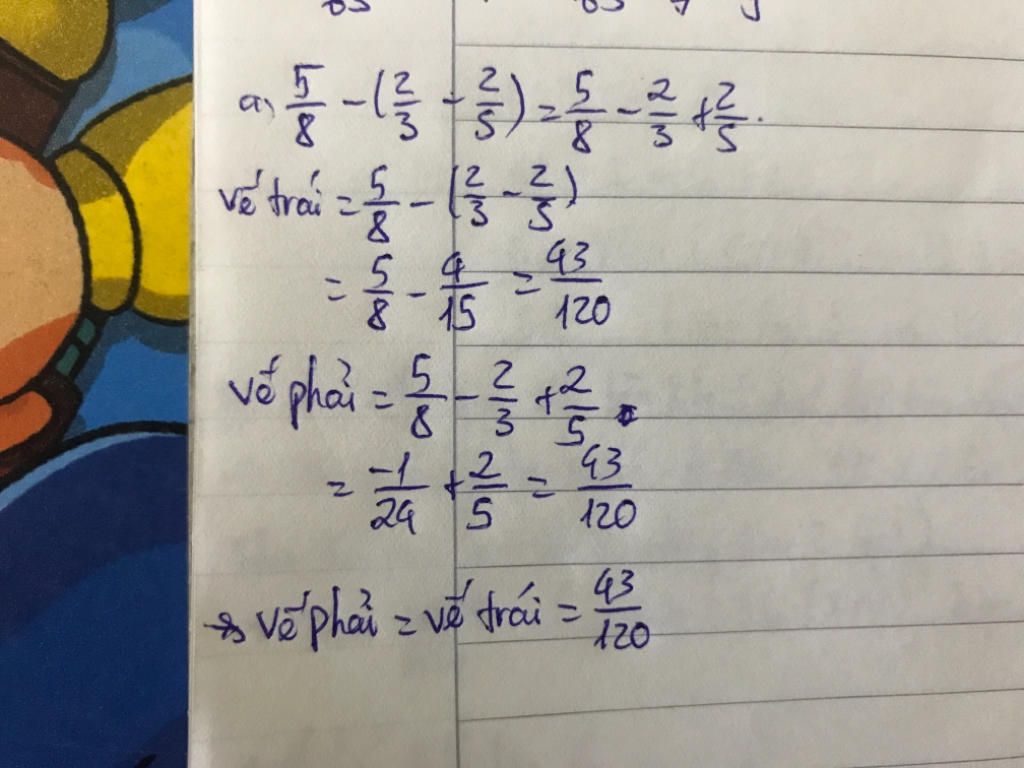 a, 5/8 - (2/3 - 2/5) = 5/8 - 2/3 + 2/5.
vế trái = 5/8 - (2/3 - 2/5)
= 5/8 - 4/15 = 43/120
vế phải = 5/8 - 2/3 + 2/5
= -1/24 + 2/5 = 43/120
→ vế phải = vế trái = 43/120